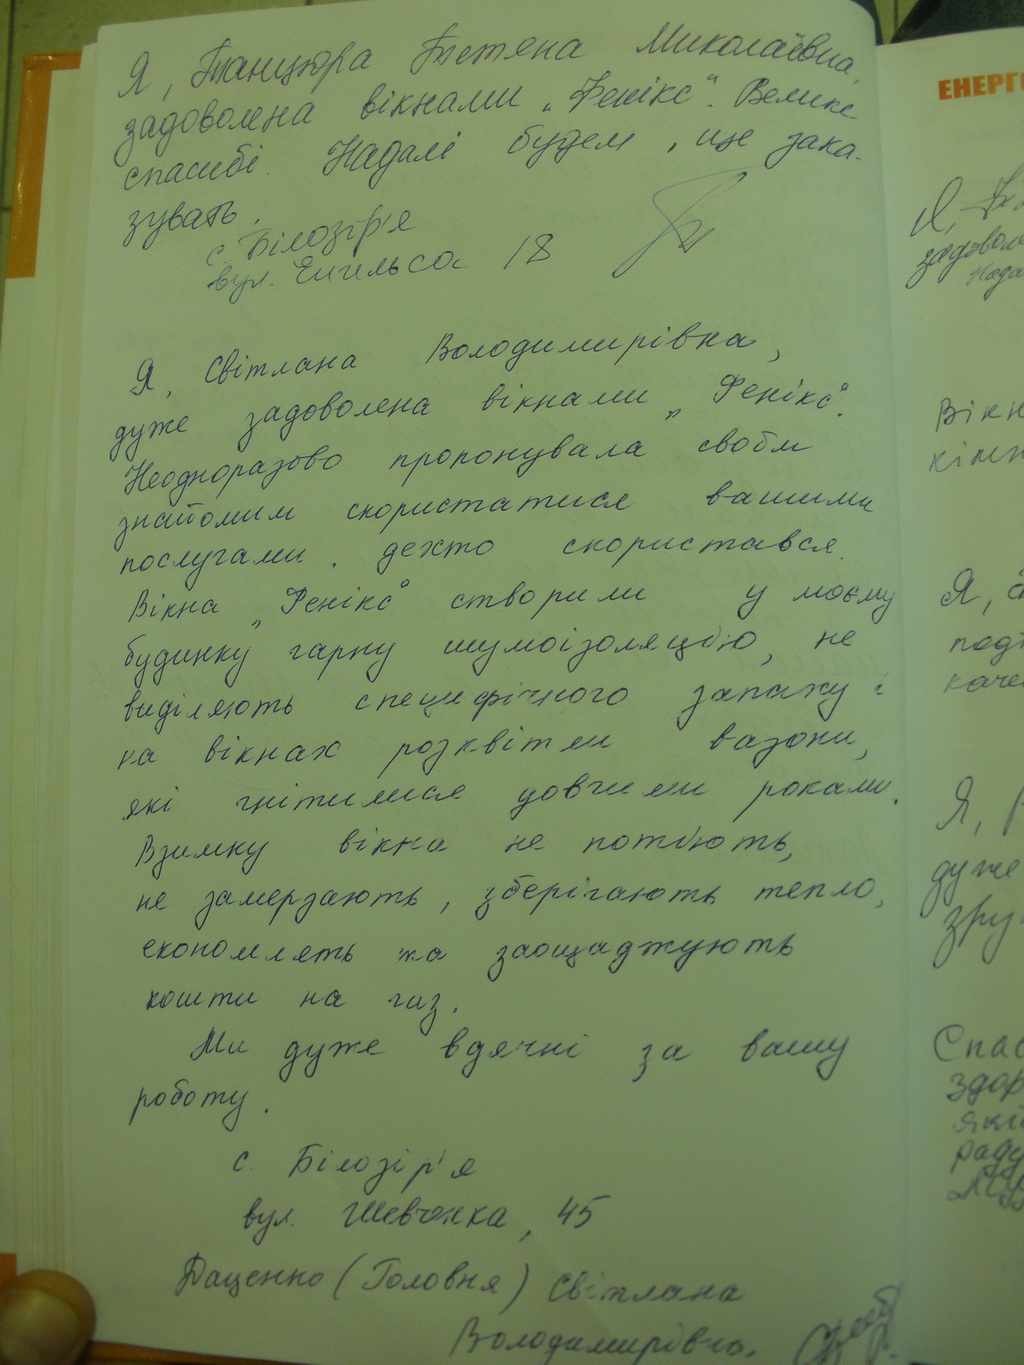 Я, Танцюра Тетяна Миколаївна,
задоволена вікнами „Фенікс“. Велике
спасибі. Надалі будем, ще зака-
зувать.
с. Білозір'я
вул. Енгельса 18
Я, Світлана Володимирівна,
дуже задоволена вікнами „Фенікс“.
Неодноразово пропонувала своїм
знайомим скористатися вашими
послугами. дехто скористався.
Вікна „Фенікс“ створили у моєму
будинку гарну шумоізоляцію, не
виділяють специфічного запаху і
на вікнах розквітли вазони,
які гнітилися довгими роками.
Взимку вікна не потіють,
не замерзають, зберігають тепло,
економлять та заощаджують
кошти на газ.
Ми дуже вдячні за вашу
роботу.
с. Білозір'я
вул. Шевченка, 45
Даценко (Головня) Світлана
Володимирівна.
ЕНЕРГО
Я,
задовол
Нада
Вікн
Я,
поді
каче
Я,
дуже
зру
Спас
здор
які
раду